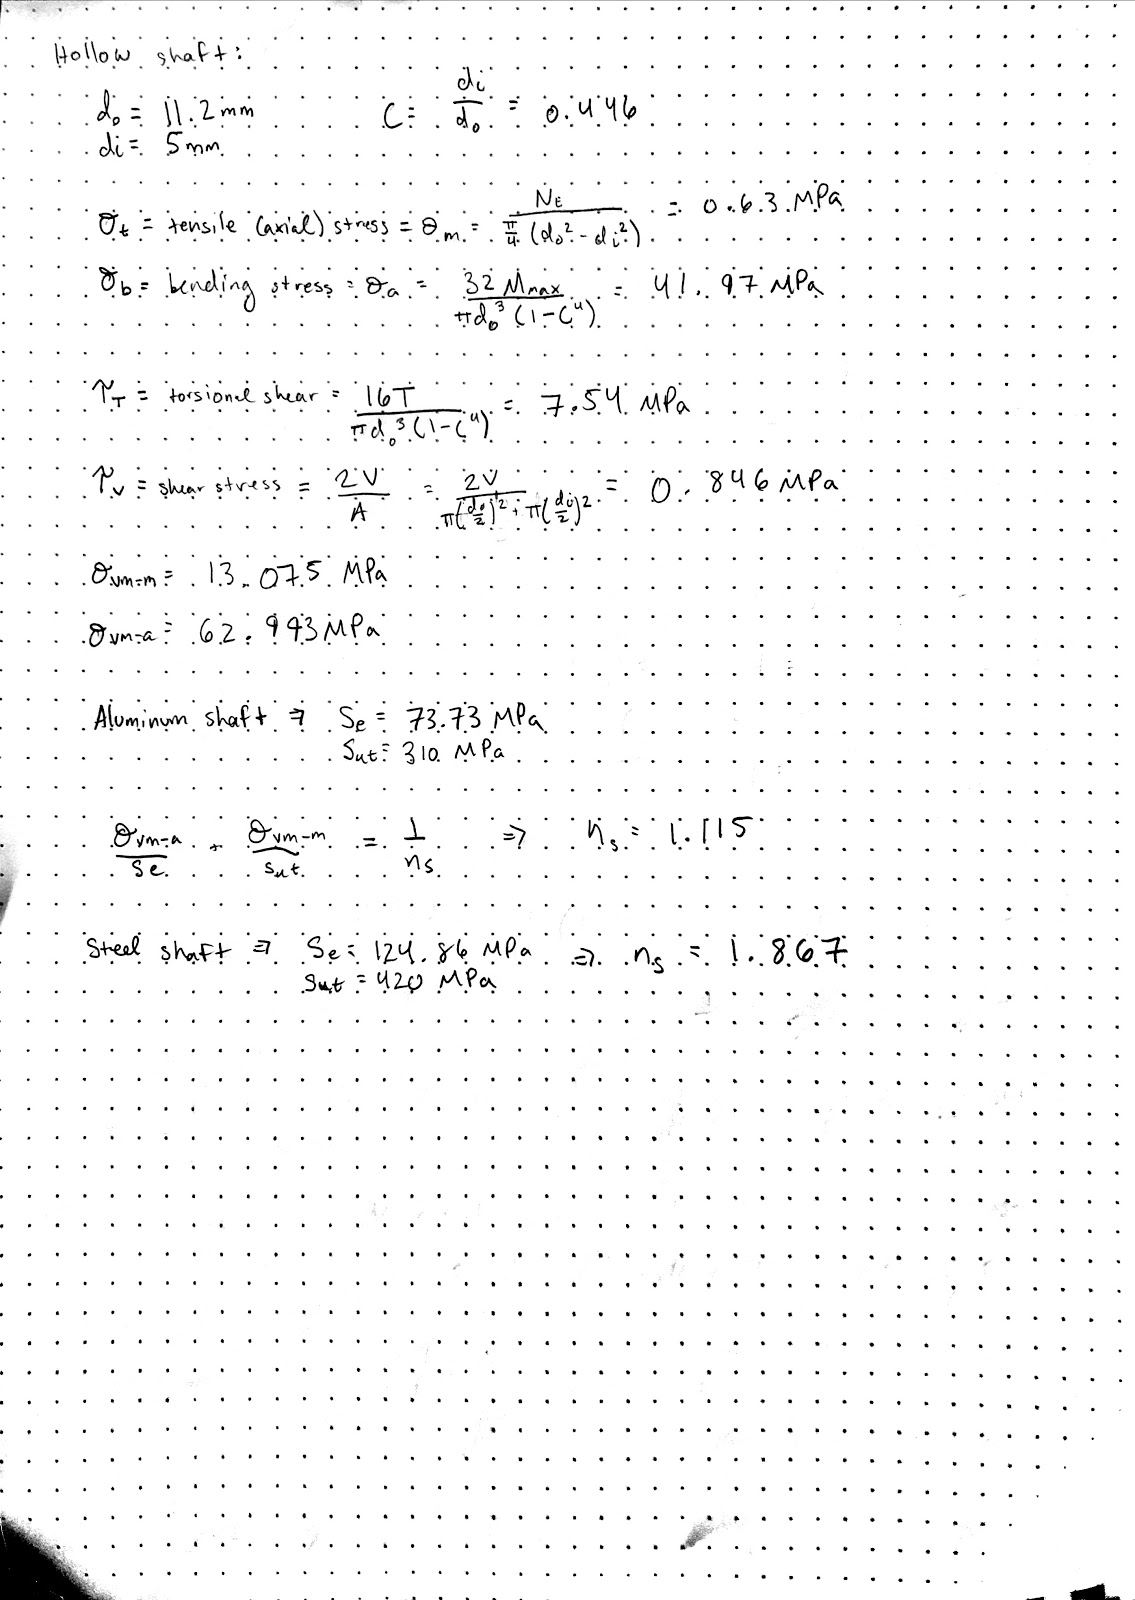 Hollow shaft:
d₀ = 11.2 mm C = dᵢ/d₀ = 0.446
di = 5 mm
σt = tensile (axial) stress = σm = N_E / (π/4 (d₀² - dᵢ²)) = 0.63 MPa
σb = bending stress = σa = 32 Mmax / (πd₀³ (1-C⁴)) = 41.97 MPa
τT = torsional shear = 16T / (πd₀³ (1-C⁴)) = 7.54 MPa
τv = shear stress = 2V/A = 2V / (π(d₀/2)² + π(di/2)²) = 0.846 MPa
σvm-m = 13.075 MPa
σvm-a = 62.993 MPa
Aluminum shaft ⇒ Se = 73.73 MPa
Sut = 310 MPa
σvm-a/Se + σvm-m/Sut = 1/ns ⇒ ns = 1.115
Steel shaft ⇒ Se = 124.86 MPa ⇒ ns = 1.867
Sut = 420 MPa